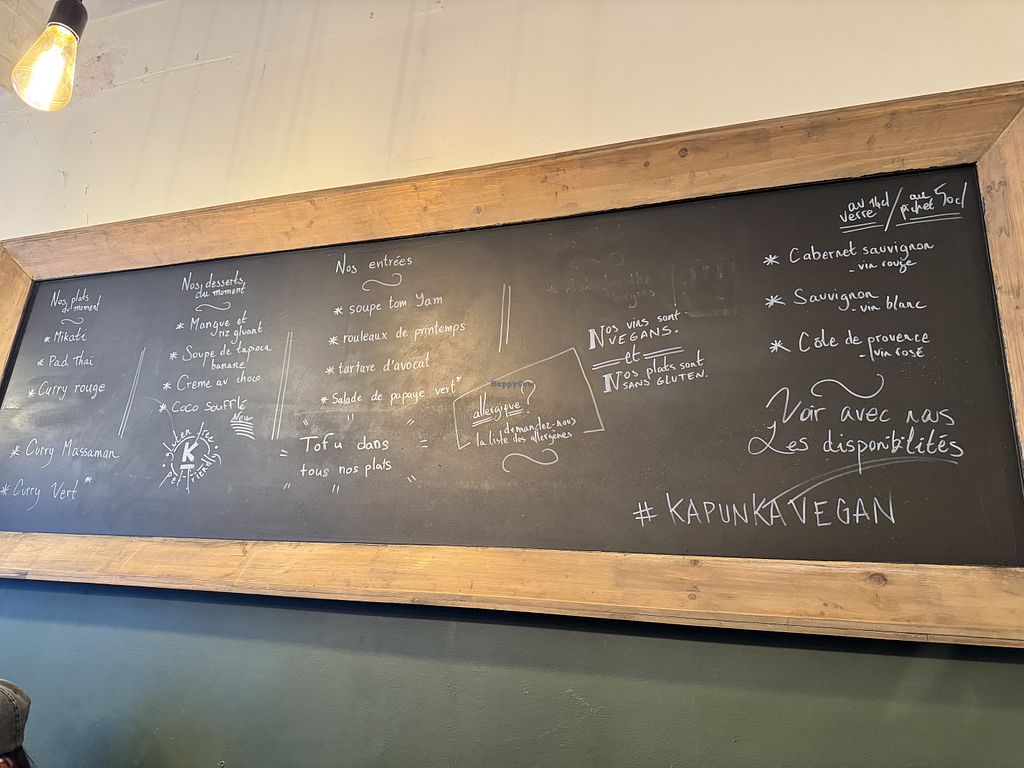 Nos plats
du moment
* Mikati
* Pad Thaï
* Curry rouge
* Curry Massaman
* Curry Vert *
Nos desserts
du moment
* Mangue et
riz gluant
* Soupe de tapioca
banane
* Creme au choco
* Coco Soufflé
New
gluten free
K
pet-friendly
Nos entrées
* soupe tom Yam
* rouleaux de printemps
* tartare d'avocat
* Salade de papaye vert"
= Tofu dans =
tous nos plats
allergique?
demandez-nous
la liste des allergènes
HappyCow
Nos vins sont
VEGANS.
et
Nos plats sont
SANS GLUTEN.
au 14cl / au 50cl
verre / pichet
* Cabernet sauvignon
- vin rouge
* Sauvignon
- vin blanc
* Côte de provence
- vin rosé
Voir avec nous
Les disponibilités
# KAPUNKAVEGAN